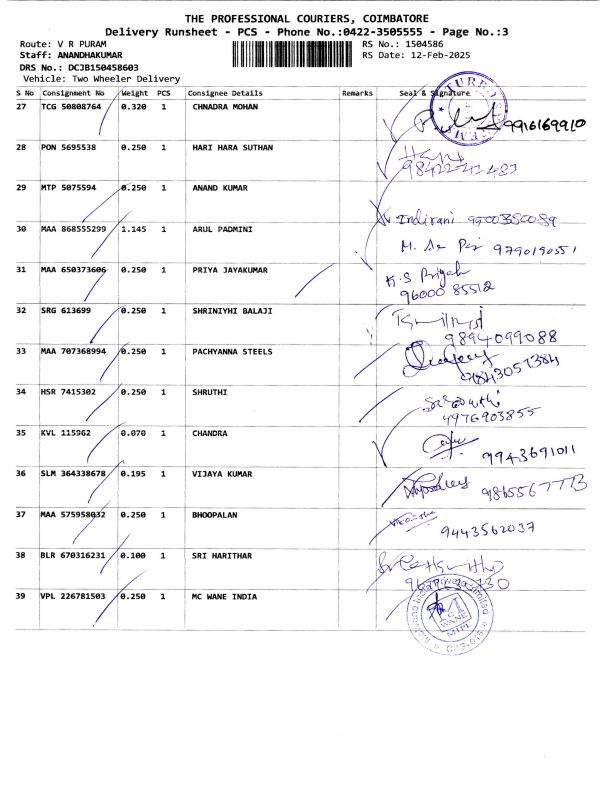 THE PROFESSIONAL COURIERS, COIMBATORE
Delivery Runsheet - PCS - Phone No.:0422-3505555 - Page No.:3
Route: V R PURAM
RS No.: 1504586
Staff: ANANDHAKUMAR
RS Date: 12-Feb-2025
DRS No.: DCJB150458603
Vehicle: Two Wheeler Delivery
S No Consignment No Weight PCS Consignee Details Remarks Seal & Signature
27 TCG 50808764 0.320 1 CHNADRA MOHAN
9916169910
28 PON 5695538 0.250 1 HARI HARA SUTHAN
29 MTP 5075594 0.250 1 ANAND KUMAR
Indirani
30 MAA 868555299 1.145 1 ARUL PADMINI
M. 9790190551
31 MAA 650373606 0.250 1 PRIYA JAYAKUMAR
K.S Priyah
96000 85512
32 SRG 613699 0.250 1 SHRINIYHI BALAJI
9894099088
33 MAA 707368994 0.250 1 PACHYANNA STEELS
34 HSR 7415302 0.250 1 SHRUTHI
4976903855
35 KVL 115962 0.070 1 CHANDRA
9943691011
36 SLM 364338678 0.195 1 VIJAYA KUMAR
9865567773
37 MAA 575958032 0.250 1 BHOOPALAN
9443562037
38 BLR 670316231 0.100 1 SRI HARITHAR
39 VPL 226781503 0.250 1 MC WANE INDIA